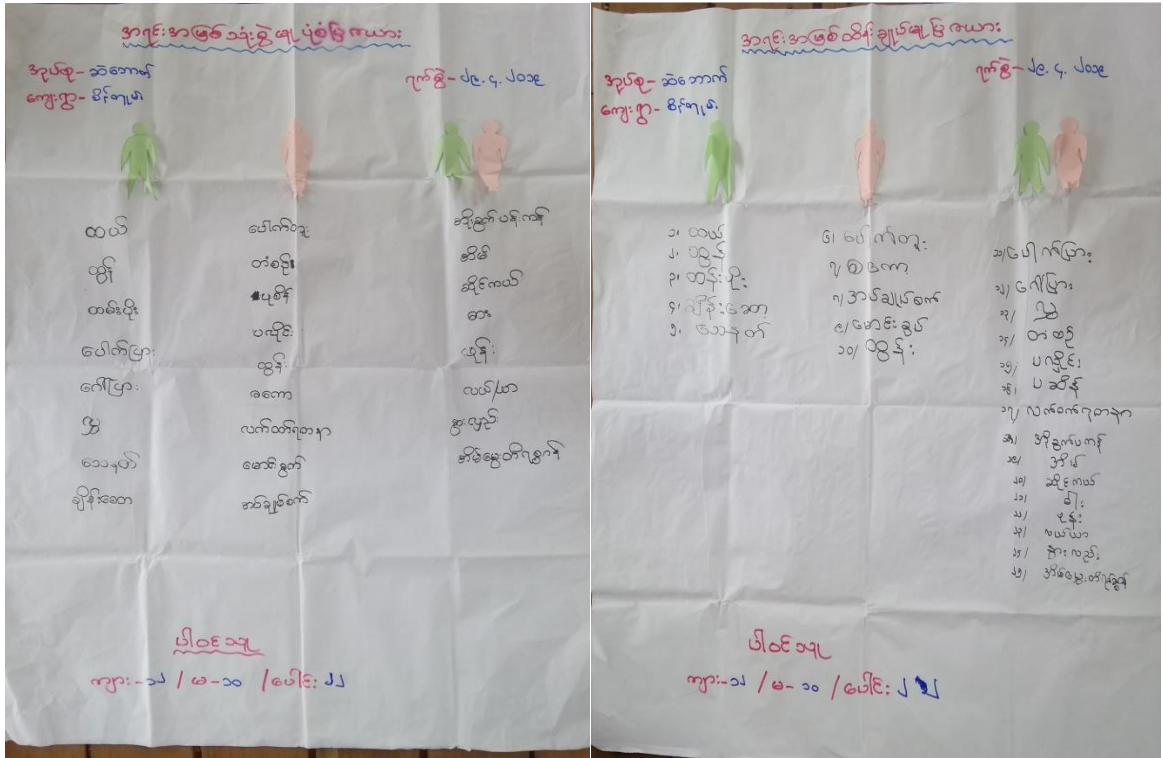 အရင်းအမြစ်သုံးစွဲမှုပုံစံပြဇယား
အုပ်စု- ဆဲဘောက်
ကျေးရွာ- စိန်တုမ်
ရက်စွဲ- ၂၉.၄.၂၀၁၉
ထယ်
ထွန်
ထမ်းပိုး
ပေါက်ပြား
ဂေါ်ပြား
လွှ
သေနတ်
ချိန်းဆော
ပေါက်တူး
တံစဉ်
ပုစိန်
ပလိုင်း
ထွန်း
ခဏော
လက်ဝတ်ရတနာ
မောင်းခွက်
အပ်ချုပ်စက်
အိုးခွက်ပန်းကန်
အိမ်
ဆိုင်ကယ်
ဓား
ဖုန်း
လယ်/ယာ
နွားလှည်း
အိမ်မွေးတိရစ္ဆာန်
ပါဝင်သူ
ကျား-၁၂ / မ-၁၀ /ပေါင်း ၂၂
အရင်းအမြစ်ထိန်းချုပ်မှုပြဇယား
အုပ်စု- ဆဲဘောက်
ကျေးရွာ- စိန်တုမ်
ရက်စွဲ- ၂၉.၄.၂၀၁၉
၁. ထယ်
၂. ထွန်
၃. ထန်းပိုး
၄. ချိန်းဆော
၅. သေနတ်
၆/ ပေါက်တူး
၇/ ခဏော
၈/ အပ်ချုပ်စက်
၉/ မောင်းခွပ်
၁၀/ ထွန်း
၁၁/ ပေါက်ပြား
၁၂/ ဂေါ်ပြား
၁၃/ လွှ
၁၄/ တံစဉ်
၁၅/ ပလှိုင်း
၁၆/ ပဆိန်
၁၇/ လက်ဝက်ရတနာ
၁၈/ အိုးခွက်ပကန်
၁၉/ အိမ်
၂၀/ ဆိုင်ကယ်
၂၁/ ဓါး
၂၂/ ဖုန်း
၂၃/ လယ်ယာ
၂၄/ နွားလည်း
၂၅/ အိမ်မွေးတိရစ္ဆာန်
ပါဝင်သူ
ကျား-၁၂ / မ-၁၀ /ပေါင်း ၂၂